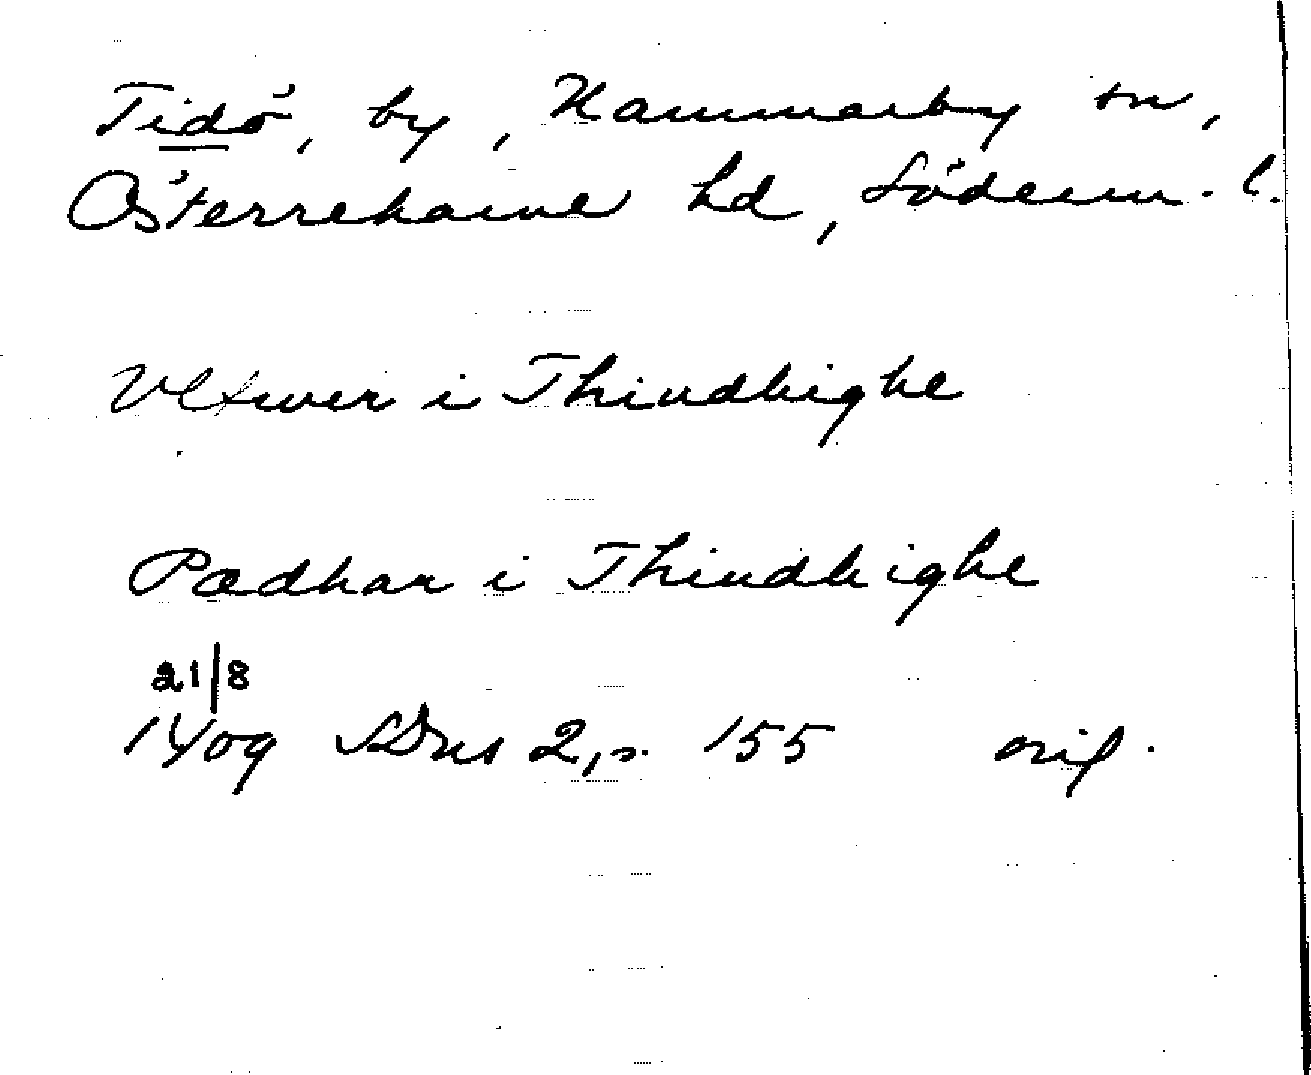 Tidö, by, Hammarby sn,
Österrekarne hd, Söderm. l.
Vlfwer i Thindhighe
Pædhar i Thindhighe
21/8
1409 SDns 2, s. 155 orig.